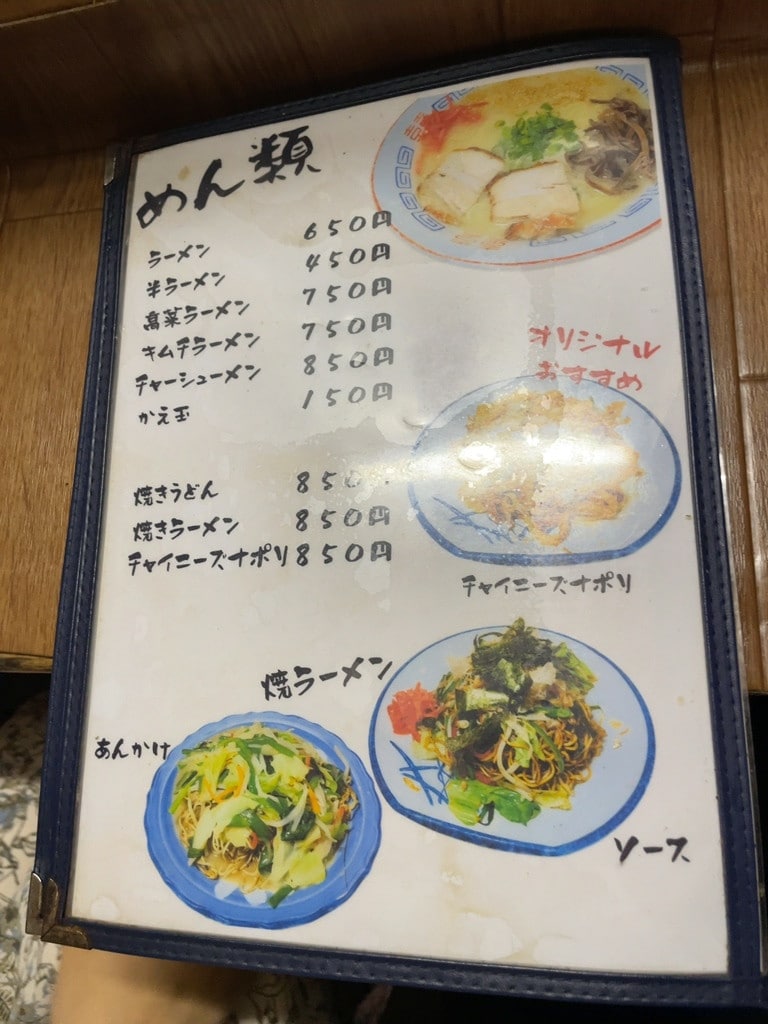 めん類
ラーメン 650円
半ラーメン 450円
高菜ラーメン 750円
キムチラーメン 750円
チャーシューメン 850円
かえ玉 150円
焼きうどん 850
焼きラーメン 850円
チャイニーズナポリ 850円
オリジナル
おすすめ
チャイニーズナポリ
焼ラーメン
あんかけ
ソース